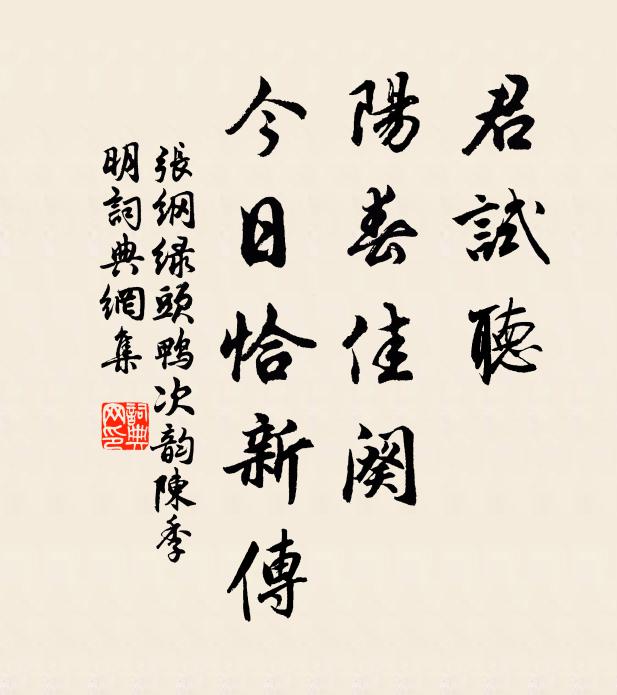 君試聽
陽春佳闋
今日恰新傳
張綱绿頭鴨次韵陳季
明詞典網集
詞典网印